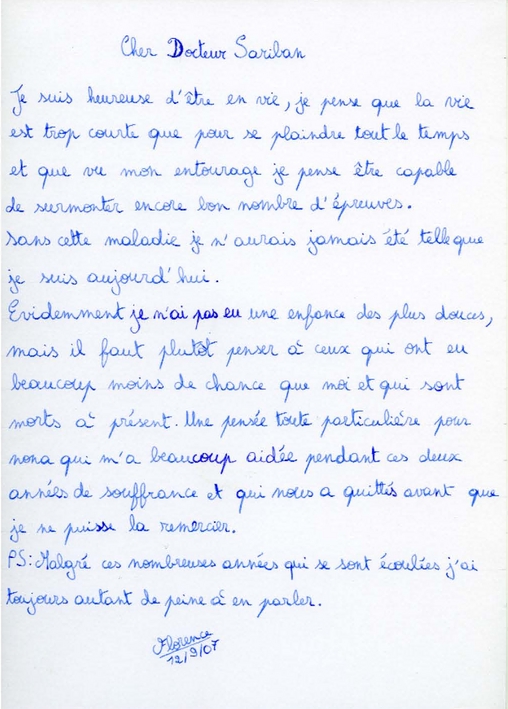 Cher Docteur Sariban
Je suis heureuse d'être en vie, je pense que la vie
est trop courte que pour se plaindre tout le temps
et que vu mon entourage je pense être capable
de surmonter encore bon nombre d'épreuves.
Sans cette maladie je n'aurais jamais été telle que
je suis aujourd'hui.
Evidemment je n'ai pas eu une enfance des plus douces,
mais il faut plutôt penser à ceux qui ont eu
beaucoup moins de chance que moi et qui sont
morts à présent. Une pensée toute particulière pour
nona qui m'a beaucoup aidée pendant ces deux
années de souffrance et qui nous a quittés avant que
je ne puisse la remercier.
PS: Malgré ces nombreuses années qui se sont écoulées j'ai
toujours autant de peine à en parler.
Florence
12/9/07